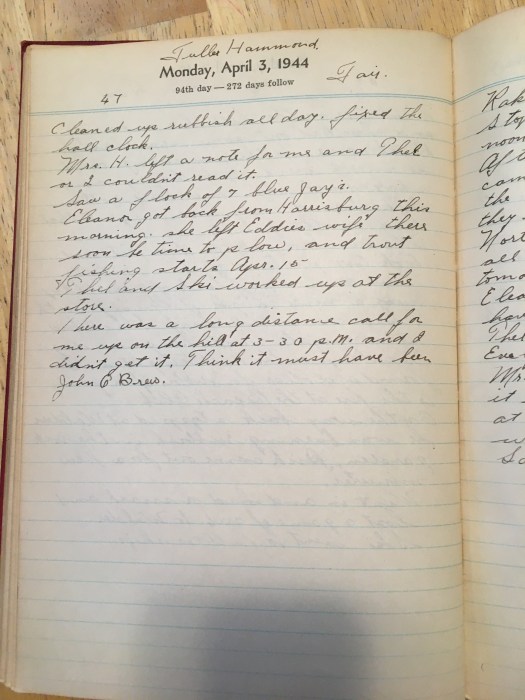 Fuller Hammond
Monday, April 3, 1944
94th day — 272 days follow
Fair.
47
Cleaned up rubbish all day. fixed the
hall clock.
Mrs. H. left a note for me and Thel
or I couldn't read it.
Saw a flock of 7 blue Jay's.
Eleanor got back from Harrisburg this
morning. she left Eddies wife there
soon be time to plow, and trout
fishing starts Apr. 15
Thel and Ski worked up at the
store.
There was a long distance call for
me up on the hill at 3-30 p.m. and I
didn't get it. Think it must have been
John C Brew.
Rak
stop
noon
Aft
cam
the
they
Nort
all
tomo
Elea
hav
Thel
Eve
Mrs
it
at
w
So